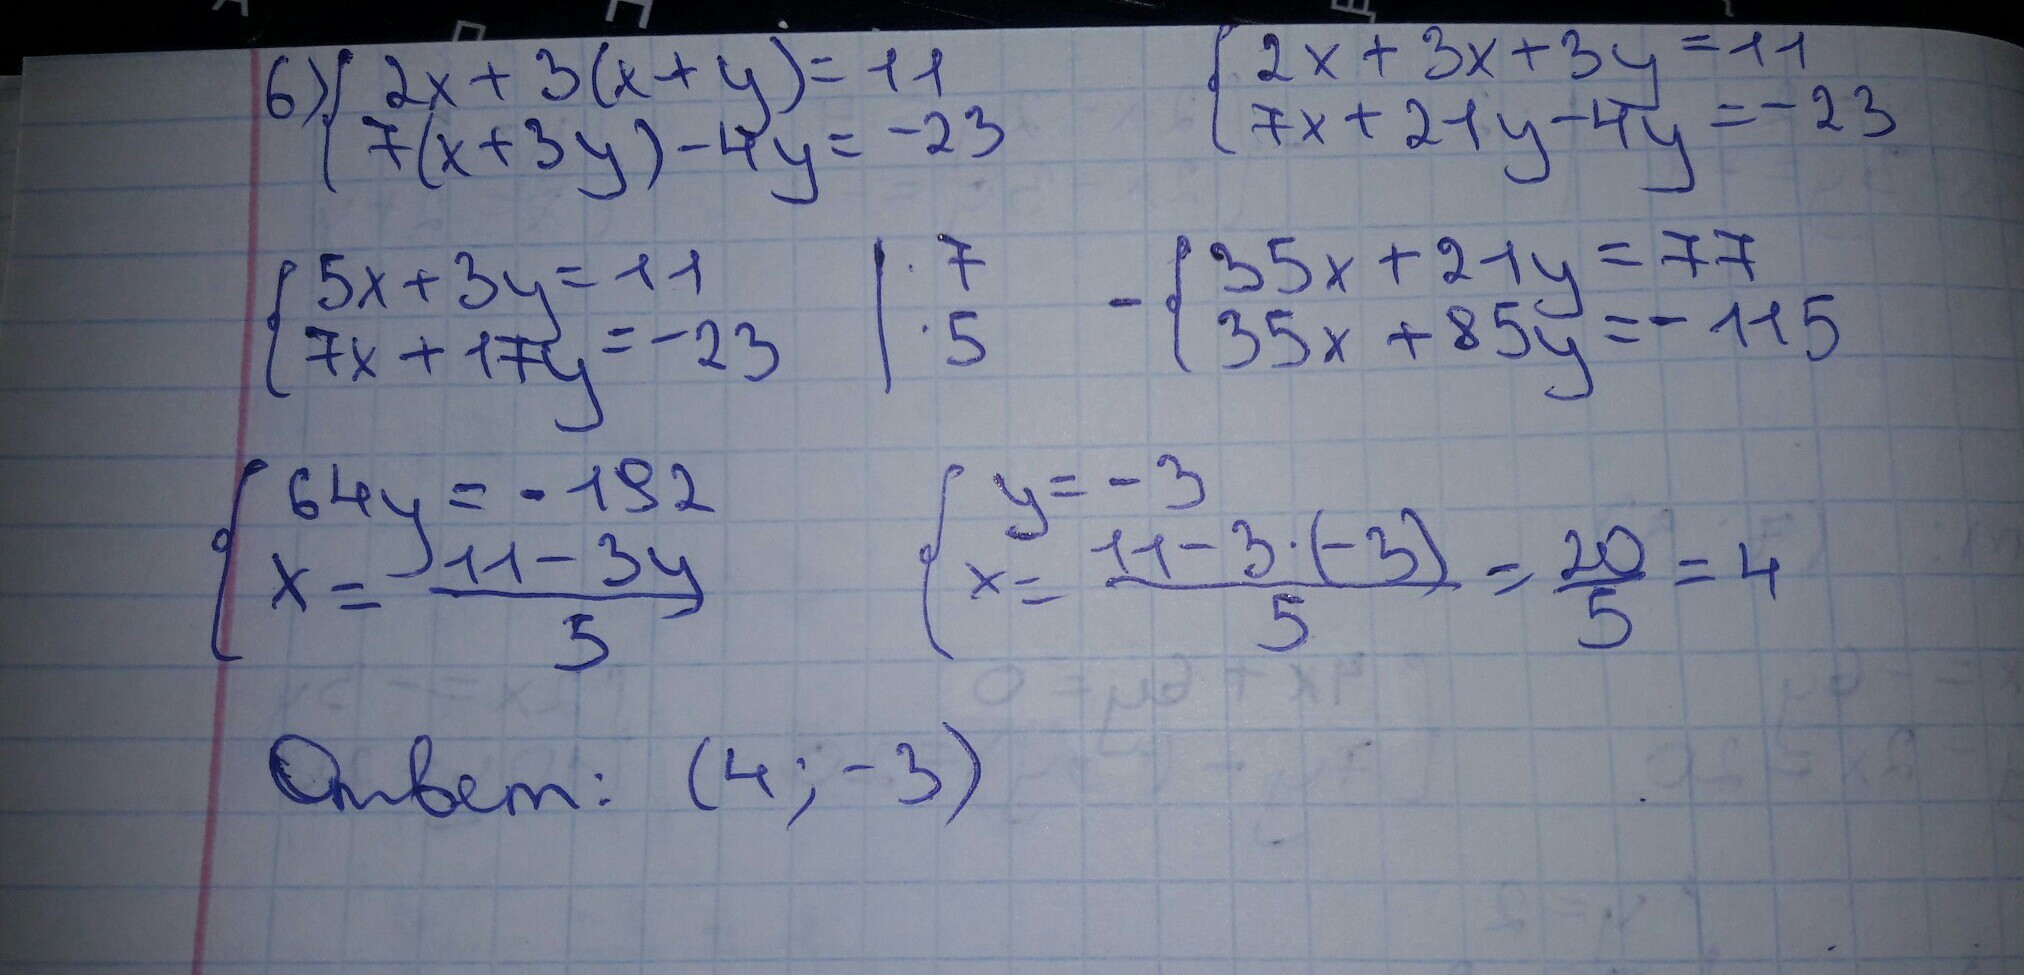 6) { 2x + 3(x + y) = 11
7(x + 3y) - 4y = -23
{ 2x + 3x + 3y = 11
7x + 21y - 4y = -23
{ 5x + 3y = 11 | · 7
7x + 17y = -23 | · 5
- { 35x + 21y = 77
35x + 85y = -115
{ 64y = -192
x = (11 - 3y)/5
{ y = -3
x = (11 - 3·(-3))/5 = 20/5 = 4
Ответ: (4; -3)